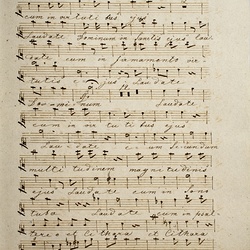 cum in virtutibus ejus
Laudate Dominum in Sanctis ejus lau
date cum in firmamento vir
tutis ejus Laudate
Dominum Laudate
cum in virtutibus ejus
Laudate cum secundum
multitudinem magnetudinis
ejus Laudate cum in Sono
tuba Laudate cum in psal
terio et cithara et cithara